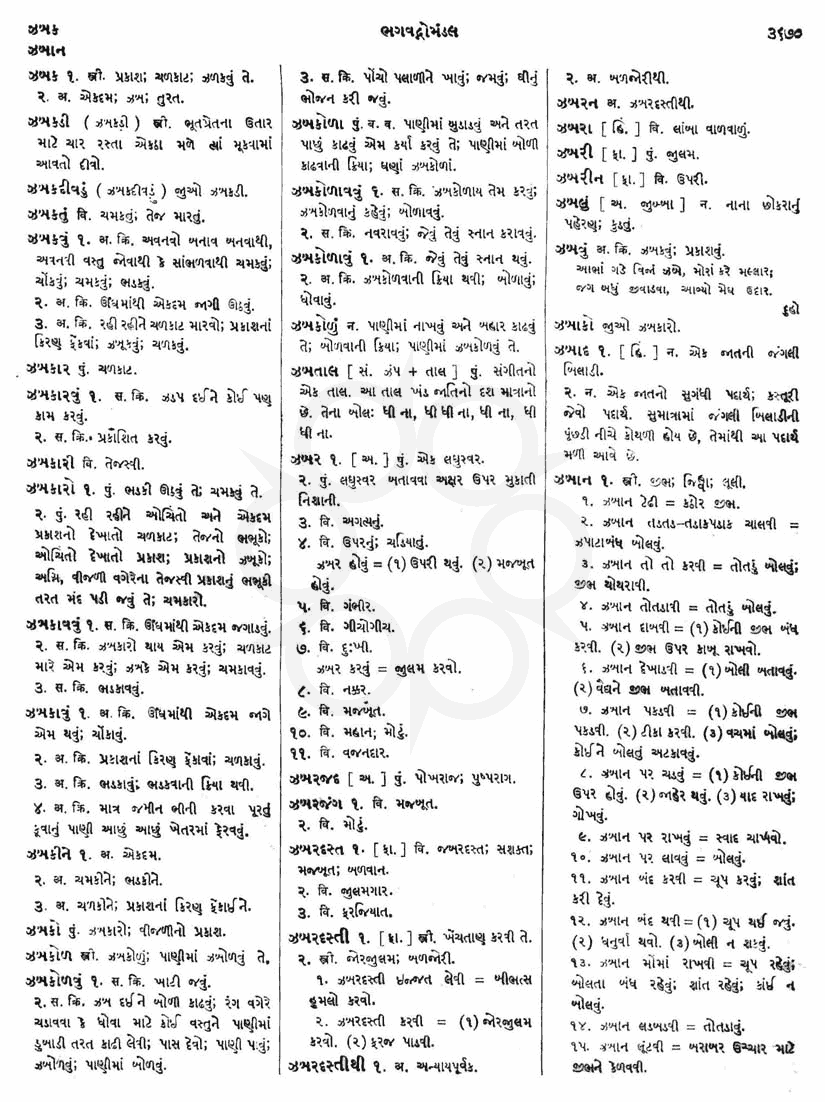 ઝબક
ઝબાન
ભગવદ્ગોમંડલ
૩૯૭૭
ઝબક ૧. સ્ત્રી. પ્રકાશ; ચળકાટ; ઝળકવું તે.
૨. અ. એકદમ; ઝબ; તુરત.
ઝબકડી ( ઝબકડ઼ી ) સ્ત્રી. ભૂતપ્રેતના ઉતાર
માટે ચાર રસ્તા એકઠા મળે ત્યાં મૂકવામાં
આવતો દીવો.
ઝબકદીવડું ( ઝબકદીવડ઼ું ) જુઓ ઝબકડી.
ઝબકતું વિ. ચમકતું; તેજ મારતું.
ઝબકવું ૧. અ. ક્રિ. અવનવો બનાવ બનવાથી,
અવનવી વસ્તુ જોવાથી કે સાંભળવાથી ચમકવું;
ચોંકવું; ચમકવું; ભડકવું.
૨. અ. ક્રિ. ઊંઘમાંથી એકદમ જાગી ઊઠવું.
૩. અ. ક્રિ. રહી રહીને ચળકાટ મારવો; પ્રકાશનાં
કિરણ ફેંકવાં; ઝબૂકવું; ચળકવું.
ઝબકાર પું. ચળકાટ.
ઝબકારવું ૧. સ. ક્રિ. ઝડપ દઈને કોઈ પણ
કામ કરવું.
૨. સ. ક્રિ. પ્રકાશિત કરવું.
ઝબકારી વિ. તેજસ્વી.
ઝબકારો ૧. પું. ભડકી ઊઠવું તે; ચમકવું તે.
૨. પું. રહી રહીને ઓચિંતો અને એકદમ
પ્રકાશનો દેખાતો ચળકાટ; તેજનો ભભૂકો;
ઓચિંતો દેખાતો પ્રકાશ; પ્રકાશનો ઝબૂકો;
અગ્નિ, વીજળી વગેરેના તેજસ્વી પ્રકાશનું ભભૂકી
તરત મંદ પડી જવું તે; ચમકારો.
ઝબકાવવું ૧. સ. ક્રિ. ઊંઘમાંથી એકદમ જગાડવું.
૨. સ. ક્રિ. ઝબકારો થાય એમ કરવું; ચળકાટ
મારે એમ કરવું; ઝબકે એમ કરવું; ચમકાવવું.
૩. સ. ક્રિ. ભડકાવવું.
ઝબકાવું ૧. અ. ક્રિ. ઊંઘમાંથી એકદમ જાગે
એમ થવું; ચોંકાવું.
૨. અ. ક્રિ. પ્રકાશનાં કિરણ ફેંકાવાં; ચળકાવું.
૩. અ. ક્રિ. ભડકાવું; ભડકવાની ક્રિયા થવી.
૪. અ. ક્રિ. માત્ર જમીન ભીની કરવા પૂરતું
કૂવાનું પાણી આછું આછું ખેતરમાં ફેરવવું.
ઝબકીને ૧. અ. એકદમ.
૨. અ. ચમકીને; ભડકીને.
૩. અ. ચળકીને; પ્રકાશનાં કિરણ ફેંકાઈને.
ઝબકો પું. ઝબકારો; વીજળીનો પ્રકાશ.
ઝબકોળ સ્ત્રી. ઝબકોળું; પાણીમાં ઝબોળવું તે.
ઝબકોળવું ૧. સ. ક્રિ. ખાટી જવું.
૨. સ. ક્રિ. ઝબ દઈને બોળી કાઢવું; રંગ વગેરે
ચડાવવા કે ધોવા માટે કોઈ વસ્તુને પાણીમાં
ડુબાડી તરત કાઢી લેવી; પાસ દેવો; પાણી પાવું;
ઝબોળવું; પાણીમાં બોળવું.
૩. સ. ક્રિ. પોંચો પલાળીને ખાવું; જમવું; ઘીનું
ભોજન કરી જવું.
ઝબકોળા પું. બ. વ. પાણીમાં બુડાડવું અને તરત
પાછું કાઢવું એમ કર્યા કરવું તે; પાણીમાં બોળી
કાઢવાની ક્રિયા; ઘણાં ઝબકોળાં.
ઝબકોળાવવું ૧. સ. ક્રિ. ઝબકોળાય તેમ કરવું;
ઝબકોળવાનું કહેવું; બોળાવવું.
૨. સ. ક્રિ. નવરાવવું; જેવું તેવું સ્નાન કરાવવું.
ઝબકોળાવું ૧. અ. ક્રિ. જેવું તેવું સ્નાન થવું.
૨. અ. ક્રિ. ઝબકોળવાની ક્રિયા થવી; બોળાવું;
ધોવાવું.
ઝબકોળું ન. પાણીમાં નાખવું અને બહાર કાઢવું
તે; બોળવાની ક્રિયા; પાણીમાં ઝબકોળવું તે.
ઝબતાલ [ સં. ઝંપ + તાલ ] પું. સંગીતનો
એક તાલ. આ તાલ ખંડ જાતિનો દશ માત્રાનો
છે. તેના બોલ: ધી ના, ધી ધી ના, ધી ના, ધી
ધી ના.
ઝબર ૧. [ અ. ] પું. એક લઘુસ્વર.
૨. પું. લઘુસ્વર બતાવવા અક્ષર ઉપર મુકાતી
નિશાની.
૩. વિ. અગત્યનું.
૪. વિ. ઉપરનું; ચડિયાતું.
ઝબર હોવું = (૧) ઉપરી થવું. (૨) મજબૂત
હોવું.
૫. વિ. ગંભીર.
૬. વિ. ગીચોગીચ.
૭. વિ. દુઃખી.
ઝબર કરવું = જુલમ કરવો.
૮. વિ. નક્કર.
૯. વિ. મજબૂત.
૧૦. વિ. મહાન; મોટું.
૧૧. વિ. વજનદાર.
ઝબરજદ [ અ. ] પું. પોખરાજ; પુષ્પરાગ.
ઝબરજંગ ૧. વિ. મજબૂત.
૨. વિ. મોટું.
ઝબરદસ્ત ૧. [ ફા. ] વિ. જબરદસ્ત; સશક્ત;
મજબૂત; બળવાન.
૨. વિ. જુલમગાર.
૩. વિ. ફરજિયાત.
ઝબરદસ્તી ૧. [ ફા. ] સ્ત્રી. ખેંચતાણ કરવી તે.
૨. સ્ત્રી. જોરજુલમ; બળજોરી.
૧. ઝબરદસ્તી ઇજ્જત લેવી = બીભત્સ
હુમલો કરવો.
૨. ઝબરદસ્તી કરવી = (૧) જોરજુલમ
કરવો. (૨) ફરજ પાડવી.
ઝબરદસ્તીથી ૧. અ. અન્યાયપૂર્વક.
૨. અ. બળજોરીથી.
ઝબરન અ. ઝબરદસ્તીથી.
ઝબરા [ હિં. ] વિ. લાંબા વાળવાળું.
ઝબરી [ ફા. ] પું. જુલમ.
ઝબરીન [ ફા. ] વિ. ઉપરી.
ઝબલું [ અ. જુબ્બા ] ન. નાના છોકરાનું
પહેરણ; કુડતું.
ઝબવું અ. ક્રિ. ઝબકવું; પ્રકાશવું.
આભાં ગડે વિજાં ઝબે, મોરાં કરે મલ્લાર;
જગ બધું જીવાડવા, આવ્યો મેઘ ઉદાર.
દુહો
ઝબાકો જુઓ ઝબકારો.
ઝબાદ ૧. [ હિં. ] ન. એક જાતની જંગલી
બિલાડી.
૨. ન. એક જાતનો સુગંધી પદાર્થ; કસ્તૂરી
જેવો પદાર્થ. સુમાત્રામાં જંગલી બિલાડીની
પૂંછડી નીચે કોથળી હોય છે, તેમાંથી આ પદાર્થ
મળી આવે છે.
ઝબાન ૧. સ્ત્રી. જીભ; જિહ્વા; લૂલી.
૧. ઝબાન ટેઢી = કઠોર જીભ.
૨. ઝબાન તડતડ–તડાકપડાક ચાલવી =
ઝપાટાબંધ બોલવું.
૩. ઝબાન તો તો કરવી = તોતડું બોલવું;
જીભ થોથરાવી.
૪. ઝબાન તોતડાવી = તોતડું બોલવું.
૫. ઝબાન દાબવી = (૧) કોઈની જીભ બંધ
કરવી. (૨) જીભ ઉપર કાબૂ રાખવો.
૬. ઝબાન દેખાડવી = (૧) બોલી બતાવવું.
(૨) વૈદ્યને જીભ બતાવવી.
૭. ઝબાન પકડવી = (૧) કોઈની જીભ
પકડવી. (૨) ટીકા કરવી. (૩) વચમાં બોલવું;
કોઈને બોલતું અટકાવવું.
૮. ઝબાન પર ચડવું = (૧) કોઈની જીભ
ઉપર હોવું. (૨) જાહેર થવું. (૩) યાદ રાખવું;
ગોખવું.
૯. ઝબાન પર રાખવું = સ્વાદ ચાખવો.
૧૦. ઝબાન પર લાવવું = બોલવું.
૧૧. ઝબાન બંદ કરવી = ચૂપ કરવું; શાંત
કરી દેવું.
૧૨. ઝબાન બંદ થવી = (૧) ચૂપ થઈ જવું.
(૨) ધનુર્વા થવો. (૩) બોલી ન શકવું.
૧૩. ઝબાન મોંમાં રાખવી = ચૂપ રહેવું;
બોલતા બંધ રહેવું; શાંત રહેવું; કાંઈ ન
બોલવું.
૧૪. ઝબાન લડખડવી = તોતડાવું.
૧૫. ઝબાન લૂંટવી = બરાબર ઉચ્ચાર માટે
જીભને કેળવવી.